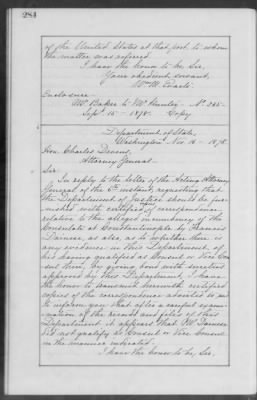 284
of the United States at that port, to whom
the matter was referred.
I have the honor to be, Sir,
Your obedient servant,
Wm M. Evarts.
Enclosure.
Mr Baker to Mr Hunter No 285.
Sept 15 - 1878. Copy
Department of State,
Washington Nov 16 - 1878.
Hon. Charles Devens,
Attorney General.
Sir:
In reply to the letter of the Acting Attorney
General of the instant, requesting that
the Department of Justice should be fur-
nished with certified correspondence
relative to the alleged incumbency of the
Consulate at Constantinople by Francis
Dainese, as also, as to whether there is
any evidence in this Department, of
his having qualified as Consul or Vice Con-
sul there, by giving bond with sureties
approved by this Department, I have
the honor to transmit herewith certified
copies of the correspondence alluded to and
to inform you that after a careful exami-
nation of the record and files of this
Department it appears that Mr Dainese
did not qualify as Consul or Vice Consul
in the manner indicated.
I have the honor to be, Sir,